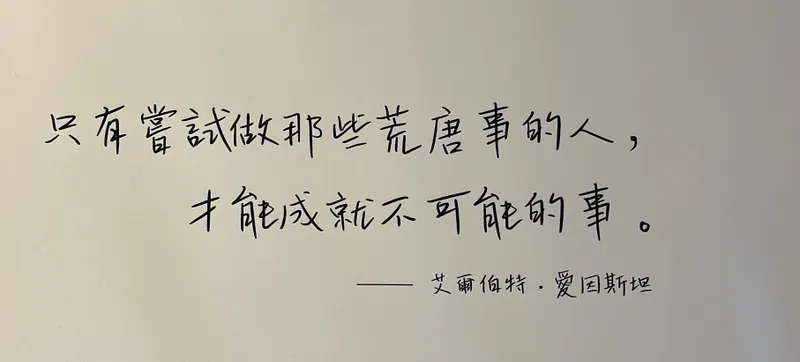 只有嘗試做那些荒唐事的人，
才能成就不可能的事。
—— 艾爾伯特．愛因斯坦